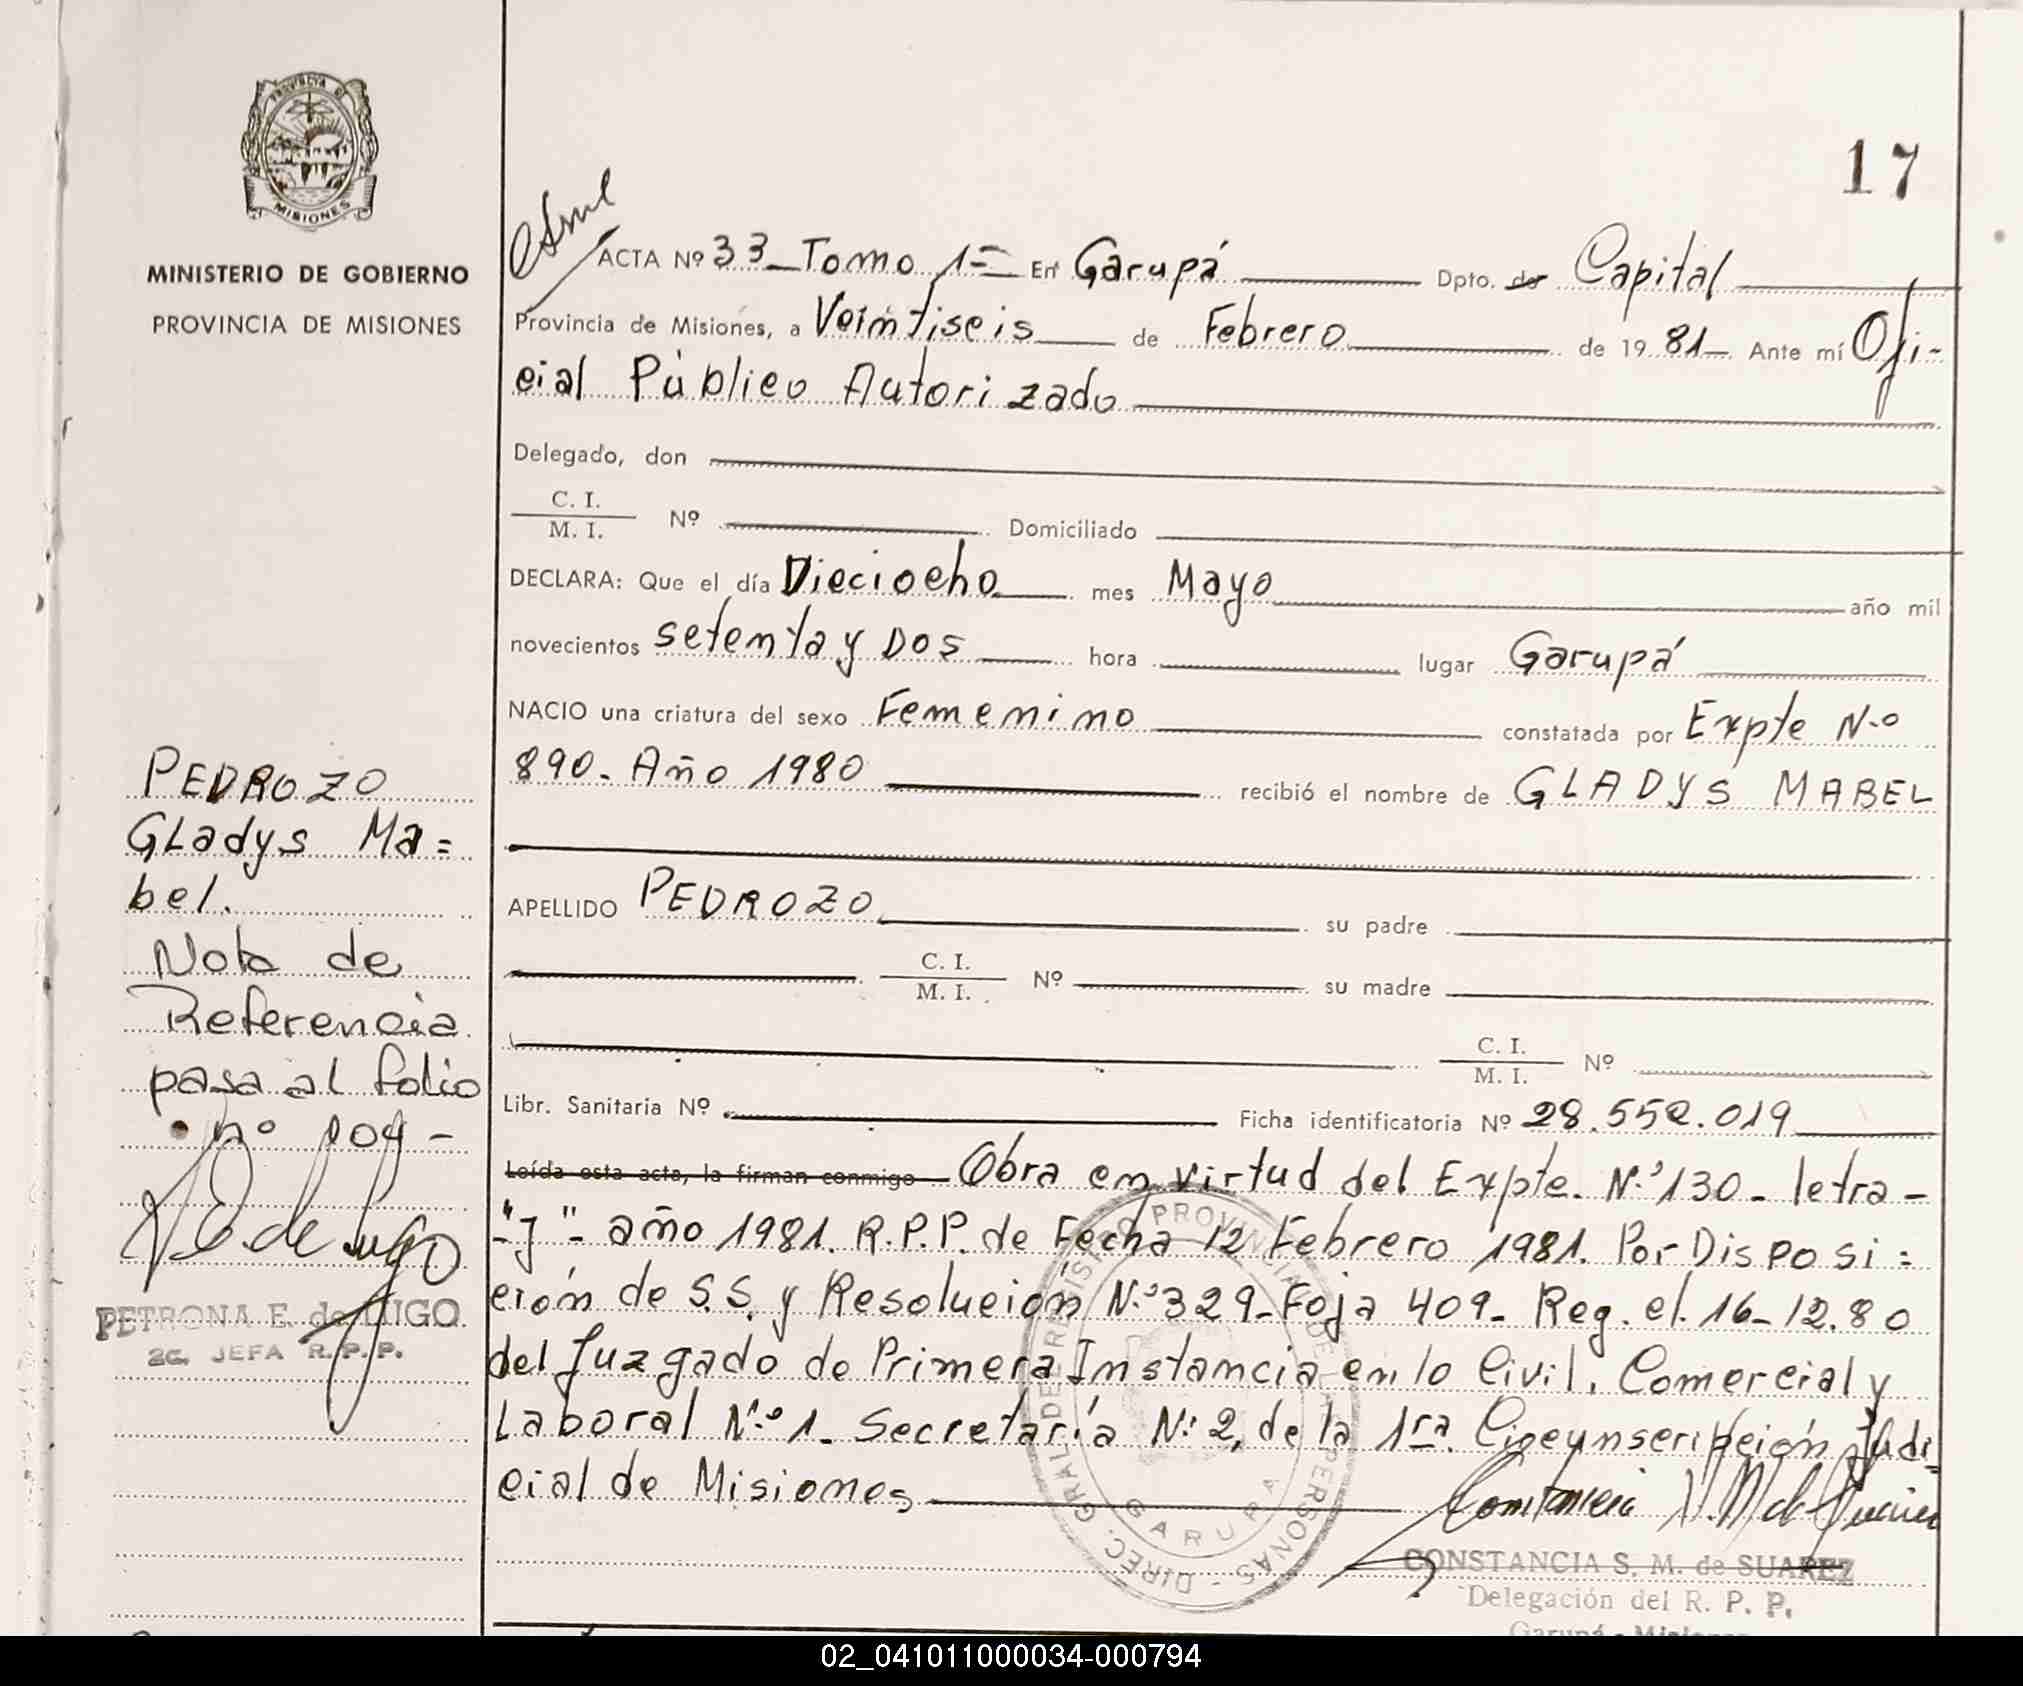 PROVINCIA DE
MISIONES
MINISTERIO DE GOBIERNO
PROVINCIA DE MISIONES
17
ACTA Nº 33 - Tomo 1º En Garupá Dpto. de Capital
Provincia de Misiones, a Veintiseis de Febrero de 1981 Ante mí Ofi-
cial Público Autorizado
Delegado, don
C. I.
M. I. Nº Domiciliado
DECLARA: Que el día Dieciocho mes Mayo año mil
novecientos setenta y Dos hora lugar Garupá
NACIO una criatura del sexo Femenino constatada por Expte Nº
890- Año 1980 recibió el nombre de GLADYS MABEL
APELLIDO PEDROZO su padre
C. I.
M. I. Nº su madre
C. I.
M. I. Nº
Libr. Sanitaria Nº Ficha identificatoria Nº 28.552.019
Leída esta acta, la firman conmigo Obra en virtud del Expte. N.º 130- letra-
"J"- año 1981. R.P.P. de Fecha 12 Febrero 1981. Por Disposi=
ción de S.S. y Resolución N.º 329- Foja 409- Reg. el. 16-12.80
del Juzgado de Primera Instancia en lo Civil, Comercial y
Laboral N.º 1- Secretaría Nº 2, de la 1ra. Circunscripción Judi=
cial de Misiones
PEDROZO
GLadys Ma=
bel.
Nota de
Referencia
pasa al folio
nº 104-
PETRONA E. de LUGO
2a. JEFA R. P. P.
DIREC. GRAL. DEL REGISTRO PROVINCIAL DE LA PERSONAS -
GARUPA
CONSTANCIA S. M. de SUAREZ
Delegación del R. P. P.
Garupá - Misiones
02_041011000034-000794